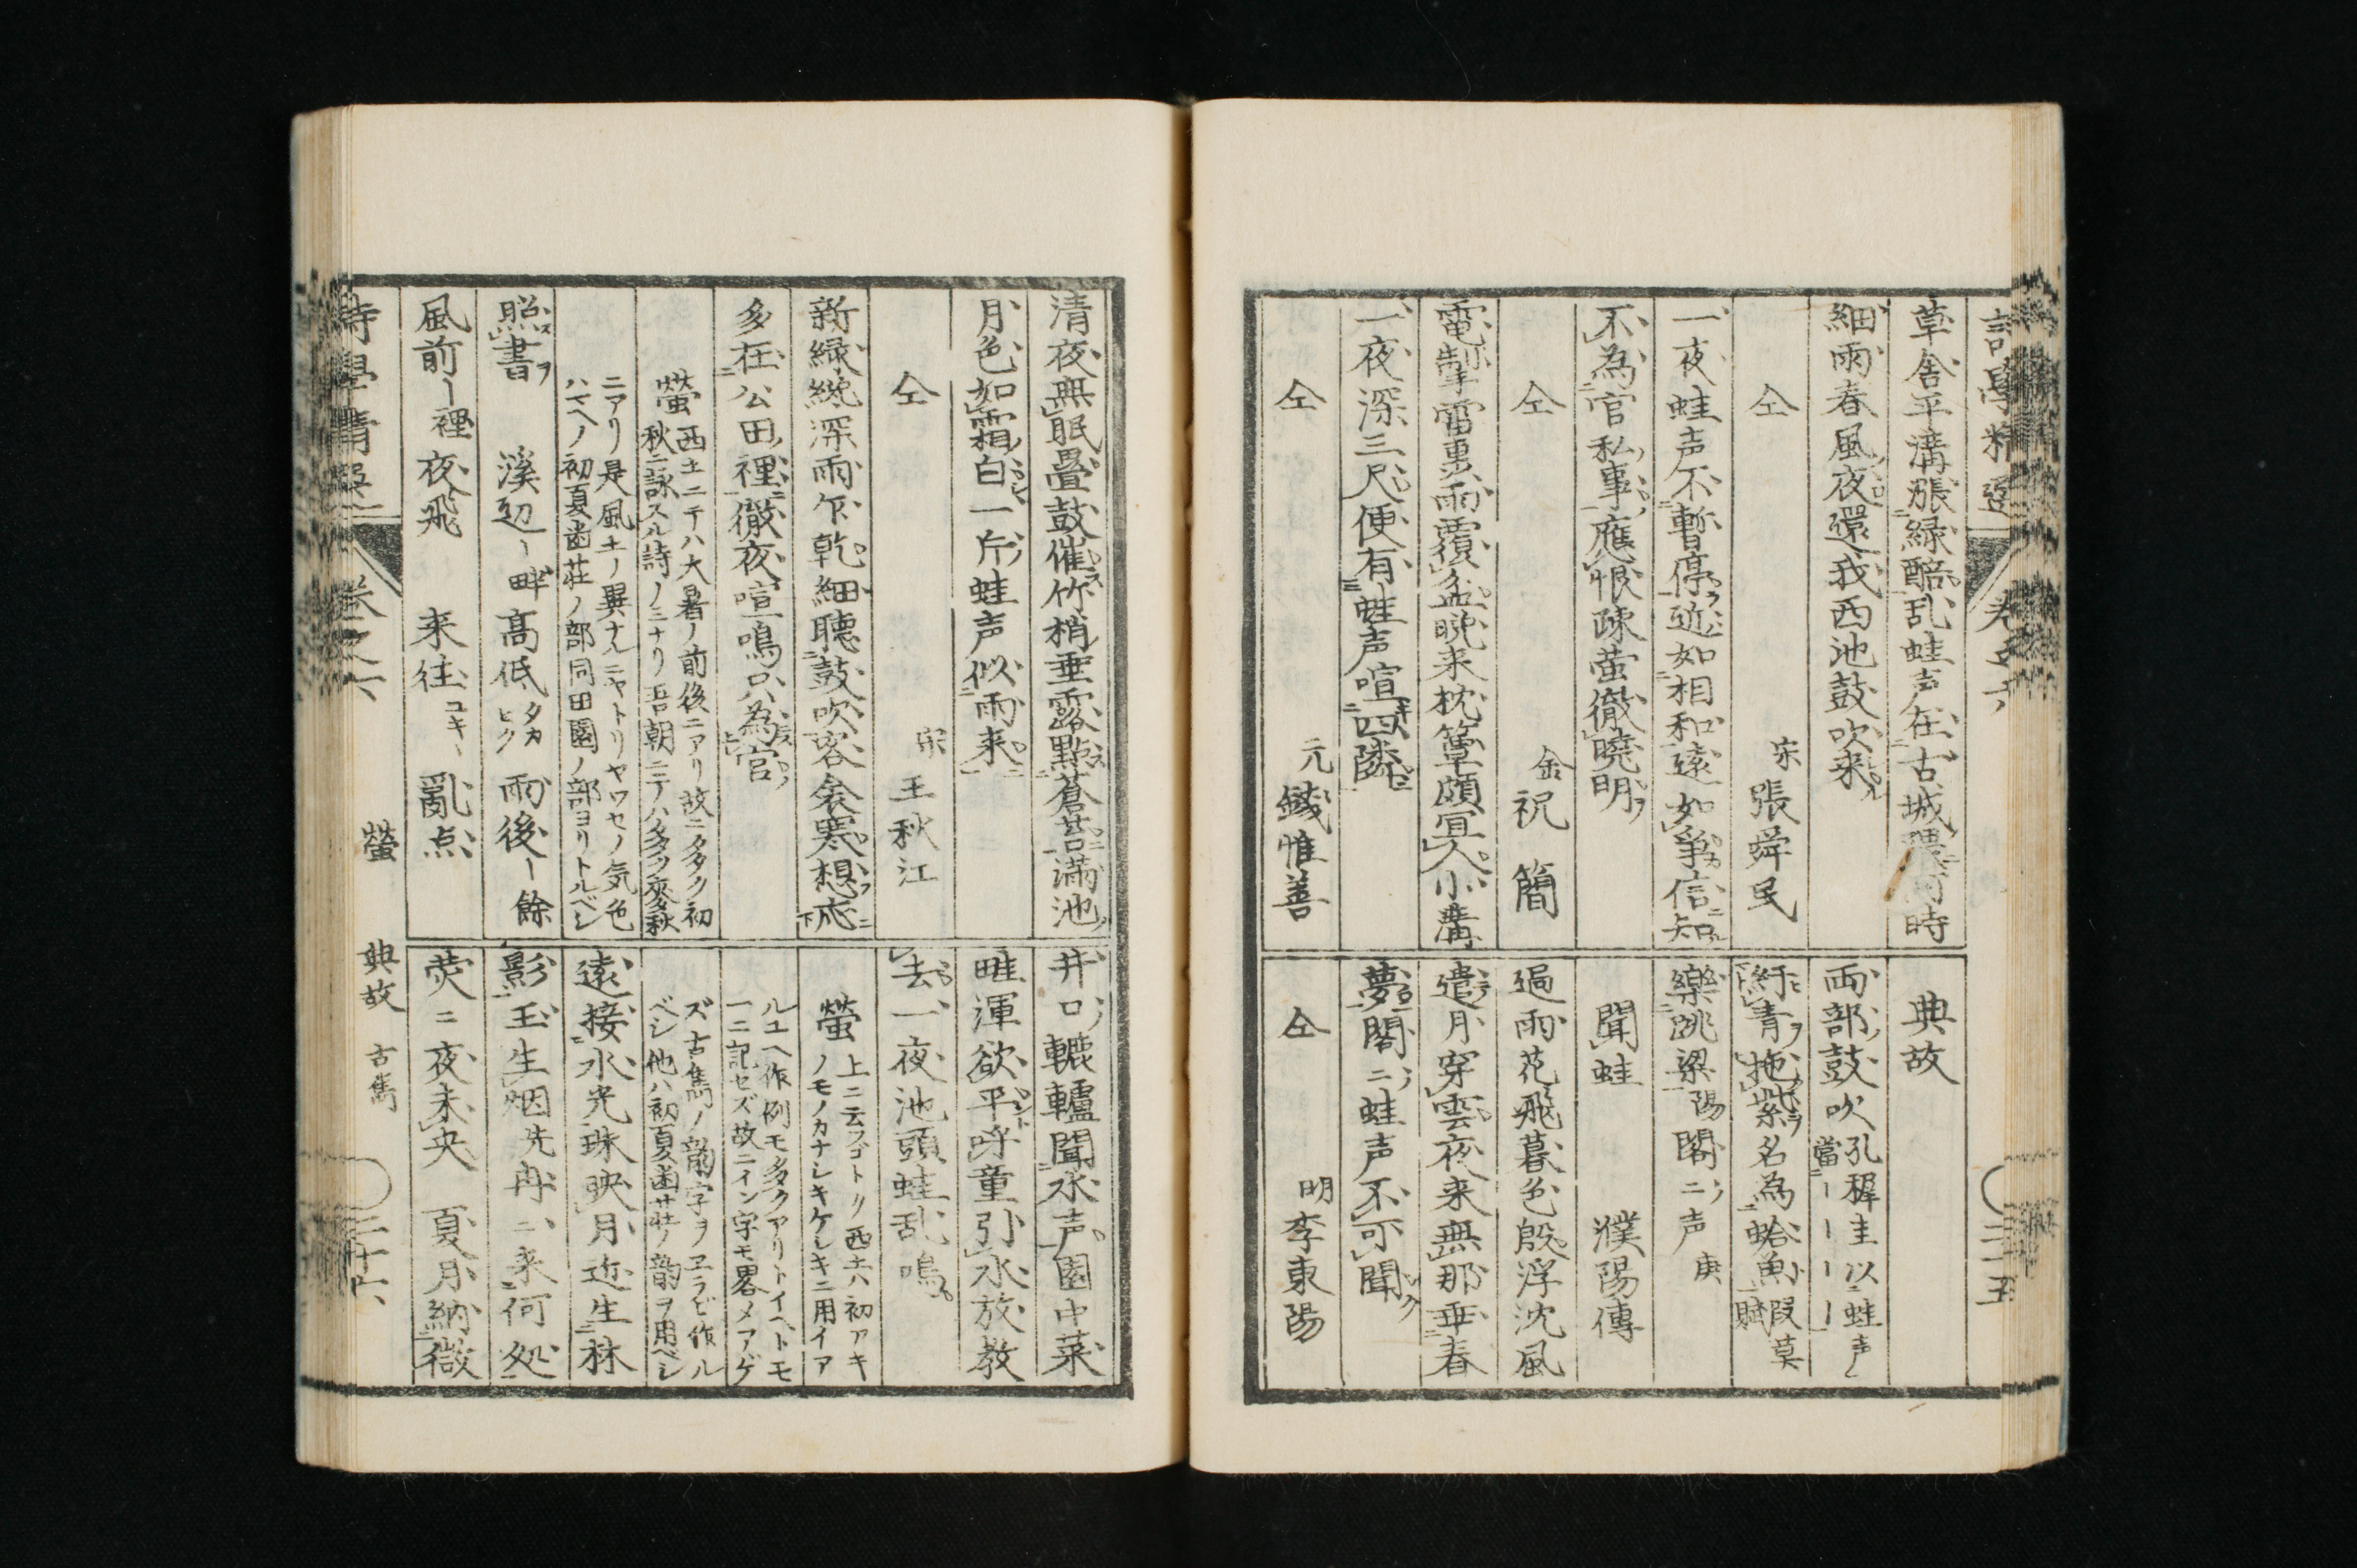 詩學精選
卷之六
三十五
草舎平溝漲緑醅乱蛙声在古城隈何時
細雨春風夜還我西池鼓吹来
仝 宋 張舜民
一夜蛙声不暫停近如相和遠如爭信知
不為官私事應恨疎螢徹曉明
仝 金 祝簡
電掣雷轟雨覆盆晩来枕簟頗宜人小溝
一夜深三尺便有蛙声喧四隣
仝 元 錢惟善
典故
両部鼓吹 孔稺圭以蛙声
當〡〡〡〡
紆青拖紫名為蛤魚 蝦蟇
賦
樂跳梁 陽閣ニ声 庚
聞蛙 濮陽傳
過雨花飛暮色殷浮沈風
遣月穿雲夜来無那垂春
夢閣ニ蛙声不可聞
仝 明 李東陽
清夜無眠畳鼓催竹梢垂露點蒼苔満池
月色如霜白一片蛙声似雨来
仝 宋 王秋江
新緑纔深雨乍乾細聴鼓吹客衾寒想応
多在公田裡徹夜喧鳴只為官
螢 西土ニテハ大暑ノ前後ニアリ故ニ多ク初
秋ニ詠スル詩ノミナリ吾朝ニテハ多ク麥秋
ニアリ是風土ノ異ナルニヤトリヤワセノ気色
ハマヘノ初夏歯莊ノ部同田園ノ部ヨリトルベシ
照書 溪辺〡畔 高低 タカヒク 雨後〡餘
風前〡裡 夜飛 来往 ユキ〡 亂点
井口轆轤聞水声園中菜
畦渾欲平呼童引水放教
去一夜池頭蛙乱鳴
螢 上ニ云フゴトク西土ハ初アキ
ノモノカナシキケシキニ用イア
ルユヘ作例モ多クアリトイヘトモ
一ニ記セズ故ニイン字モ畧メアゲ
ズ古雋ノ韵字ヲヱラビ作ル
ベシ他ハ初夏歯莊ノ韵ヲ用ベシ
遠接水光珠映月近生林
影玉生烟先冉ニ来何処
熒ニ夜未央 夏月納微
詩學精選
卷之六
螢 典故 古雋
三十六